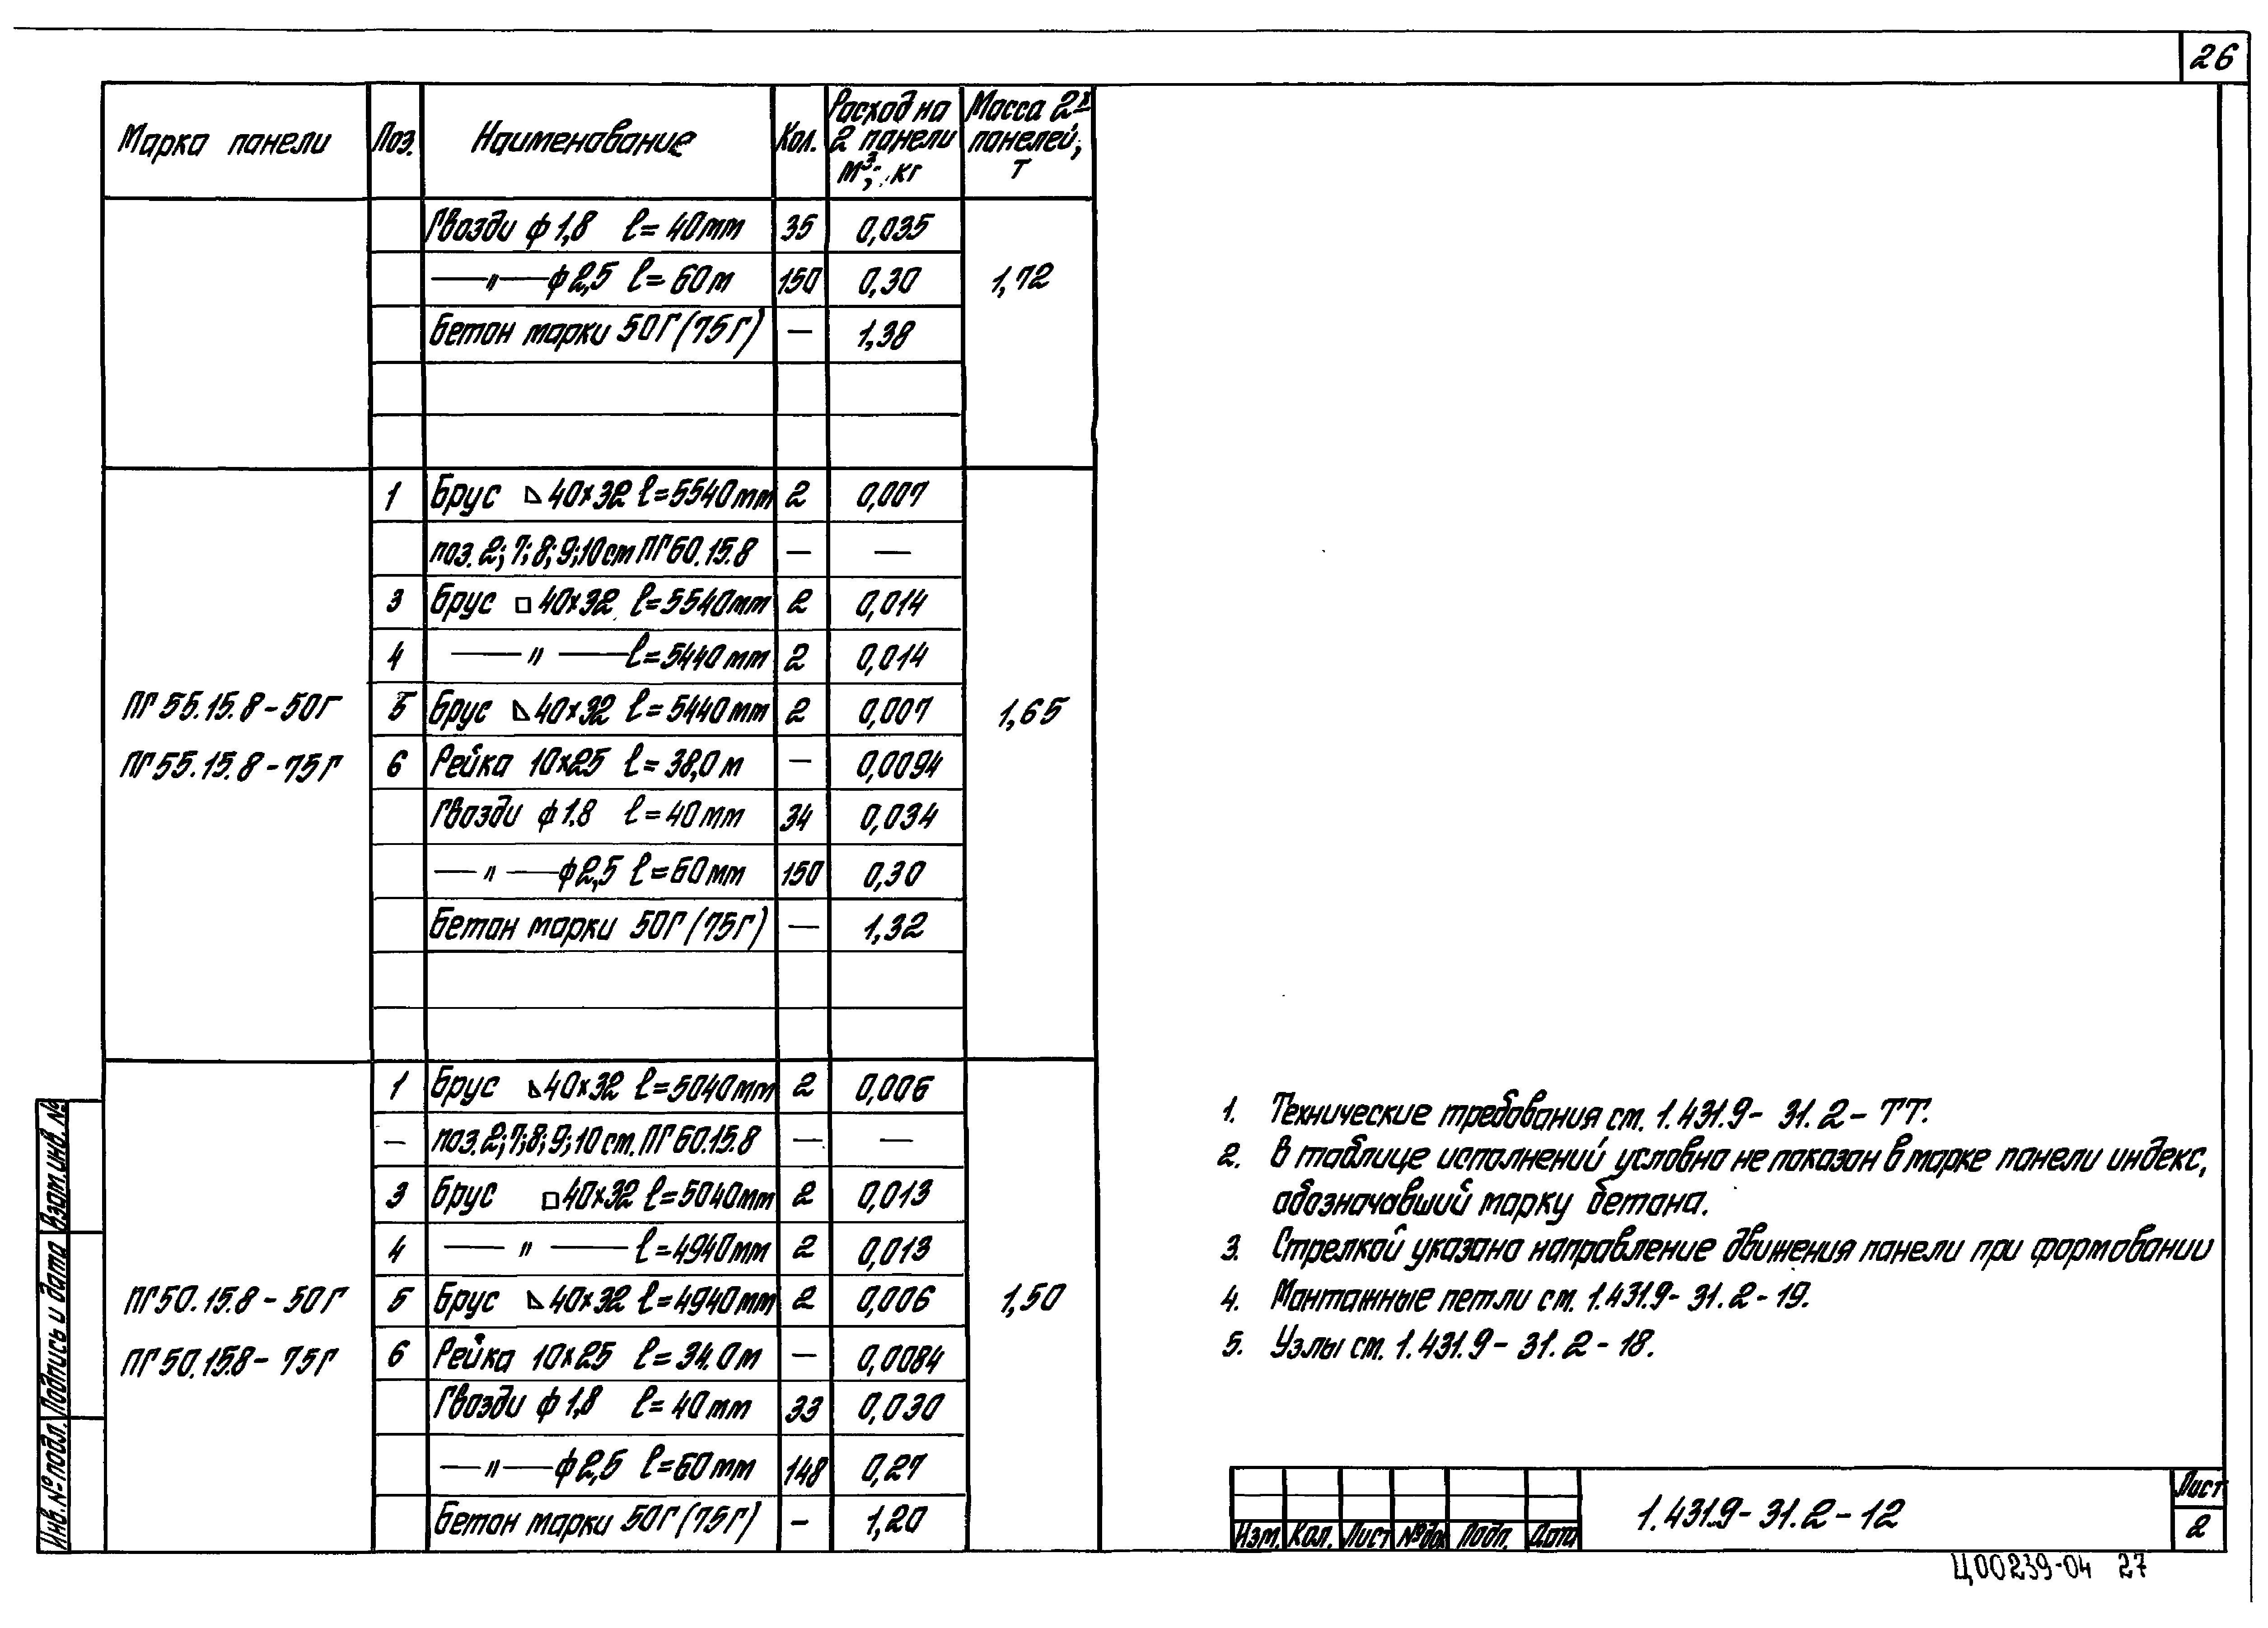 26
Марка панели Поз. Наименование Кол. Расход на 2 панели м³; кг Масса 2х панелей, т
Гвозди ф 1,8 ℓ= 40мм 35 0,035
—"— ф 2,5 ℓ= 60м 150 0,30 1,72
Бетон марки 50Г (75Г) — 1,38
1 Брус ◺ 40×32 ℓ=5540мм 2 0,007
поз. 2; 7; 8; 9; 10 ст ПГ 60.15.8 — —
3 Брус □ 40×32 ℓ=5540мм 2 0,014
4 —"— ℓ=5440мм 2 0,014
ПГ 55.15.8-50Г 5 Брус ◺ 40×32 ℓ=5440мм 2 0,007 1,65
ПГ 55.15.8-75Г 6 Рейка 10×25 ℓ= 38,0 м — 0,0094
Гвозди ф 1.8 ℓ=40мм 34 0,034
—"— ф 2,5 ℓ=60мм 150 0,30
Бетон марки 50Г (75Г) — 1,32
1 Брус ◺ 40×32 ℓ=5040мм 2 0,006
— поз. 2; 7; 8; 9; 10 ст. ПГ 60.15.8 — —
3 Брус □ 40×32 ℓ=5040мм 2 0,013
4 —"— ℓ=4940мм 2 0,013
ПГ 50.15.8-50Г 5 Брус ◺ 40×32 ℓ=4940мм 2 0,006 1,50
ПГ 50.15.8-75Г 6 Рейка 10×25 ℓ= 34.0м — 0,0084
Гвозди ф 1,8 ℓ= 40мм 33 0,030
—"— ф 2,5 ℓ=60мм 148 0,27
Бетон марки 50Г (75Г) — 1,20
1. Технические требования ст. 1.431.9- 31. 2- ТТ.
2. В таблице исполнений условно не показан в марке панели индекс,
обозначавший марку бетона.
3. Стрелкой указано направление движения панели при формовании
4. Монтажные петли см. 1.431.9- 31. 2-19.
5. Узлы ст. 1.431.9- 31. 2-18.
Взам. инв. №
Подпись и дата
Инв. № подл.
Изм. Кол. Лист №док Подп. Дата
1.431.9-31.2-12
Лист
2
Ц00239-04 27